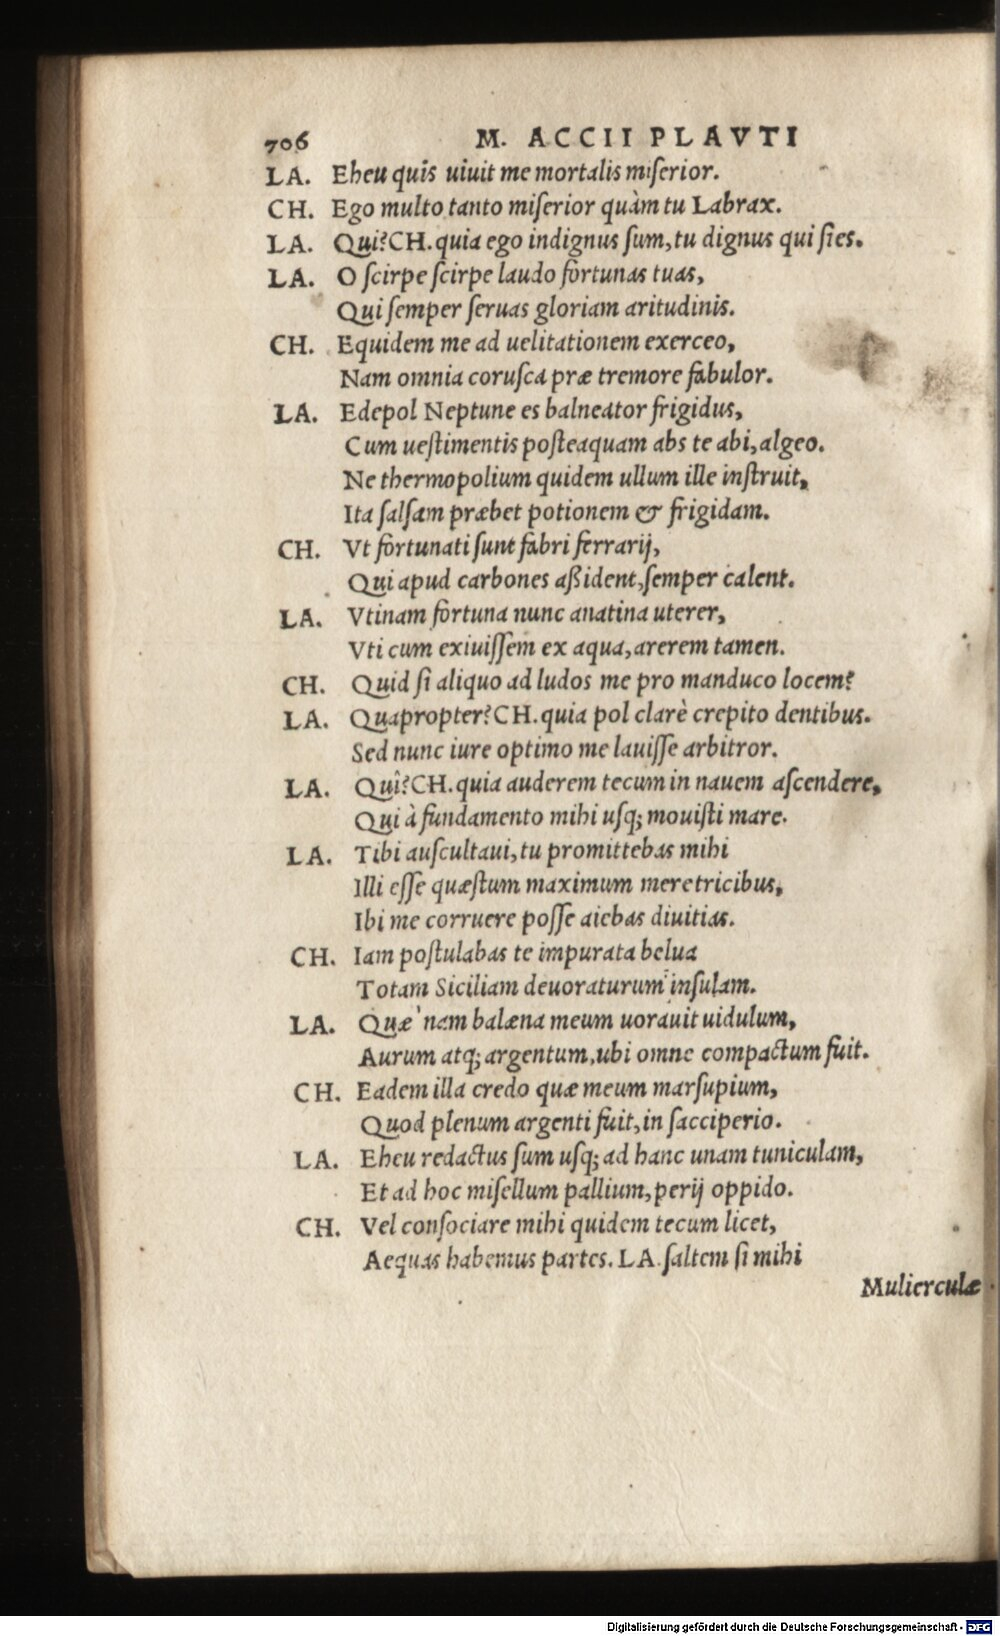 706 M. ACCII PLAVTI
LA. Eheu quis uiuit me mortalis miſerior.
CH. Ego multo tanto miſerior quàm tu Labrax.
LA. Qui? CH. quia ego indignus ſum, tu dignus qui ſies.
LA. O ſcirpe ſcirpe laudo fortunas tuas,
Qui ſemper ſeruas gloriam aritudinis.
CH. Equidem me ad uelitationem exerceo,
Nam omnia coruſca præ tremore fabulor.
LA. Edepol Neptune es balneator frigidus,
Cum ueſtimentis poſteaquam abs te abi, algeo.
Ne thermopolium quidem ullum ille inſtruit,
Ita ſalſam præbet potionem & frigidam.
CH. Vt fortunati ſunt fabri ferrarij,
Qui apud carbones aßident, ſemper calent.
LA. Vtinam fortuna nunc anatina uterer,
Vti cum exiuiſſem ex aqua, arerem tamen.
CH. Quid ſi aliquo ad ludos me pro manduco locem?
LA. Quapropter? CH. quia pol clarè crepito dentibus.
Sed nunc iure optimo me lauiſſe arbitror.
LA. Qui? CH. quia auderem tecum in nauem aſcendere,
Qui à fundamento mihi uſq; mouiſti mare.
LA. Tibi auſcultaui, tu promittebas mihi
Illi eſſe quæſtum maximum meretricibus,
Ibi me corruere poſſe aiebas diuitias.
CH. Iam poſtulabas te impurata belua
Totam Siciliam deuoraturum inſulam.
LA. Quæ nam balæna meum uorauit uidulum,
Aurum atq; argentum, ubi omne compactum fuit.
CH. Eadem illa credo quæ meum marſupium,
Quod plenum argenti fuit, in ſacciperio.
LA. Eheu redactus ſum uſq; ad hanc unam tuniculam,
Et ad hoc miſellum pallium, perij oppido.
CH. Vel conſociare mihi quidem tecum licet,
Aequas habemus partes. LA. ſaltem ſi mihi
Mulierculæ
Digitalisierung gefördert durch die Deutsche Forschungsgemeinschaft - DFG